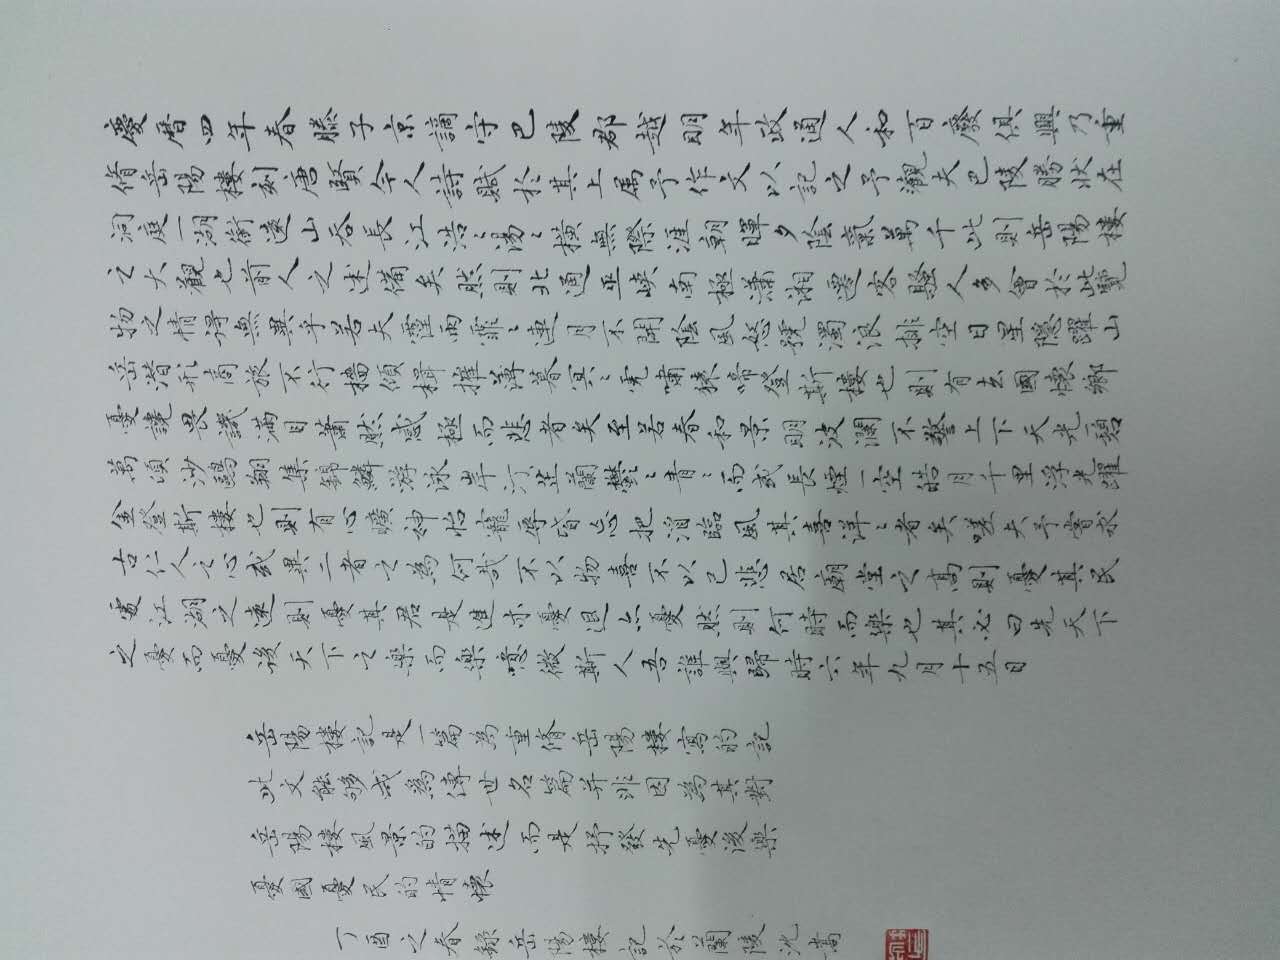 慶曆四年春滕子京謫守巴陵郡越明年政通人和百廢俱興乃重
脩岳陽樓刻唐賢今人詩賦於其上属予作文以記之予觀夫巴陵勝状在
洞庭一湖銜遠山吞長江浩〻湯〻橫無際涯朝暉夕陰氣萬千此則岳陽樓
之大觀也前人之述備矣然則北通巫峽南極瀟湘遷客騷人多會於此覽
物之情得無異乎若夫霪雨霏〻連月不開陰風怒號濁浪排空日星隱躍山
岳潛形商旅不行檣傾楫摧薄暮冥〻虎嘯猿啼登斯樓也則有去國懷鄉
憂讒畏譏滿目蕭然感極而悲者矣至若春和景明波瀾不驚上下天光碧
萬頃沙鷗翔集錦鱗游泳岸汀芷蘭鬱〻青〻而或長煙一空皓月千里浮光躍
金登斯樓也則有心曠神怡寵辱皆忘把酒臨風其喜洋〻者矣嗟夫予嘗求
古仁人之心或異二者之為何哉不以物喜不以己悲居廟堂之高則憂其民
處江湖之遠則憂其君是進亦憂退亦憂然則何時而樂也其必曰先天下
之憂而憂後天下之樂而樂噫微斯人吾誰與歸時六年九月十五日
岳陽樓記是一篇為重脩岳陽樓寫的記
此文能够成為傳世名篇并非因為其對
岳陽樓風景的描述而是抒發先憂後樂
憂國憂民的情懷
丁酉之春錄岳陽樓記於蘭陵沈嵩